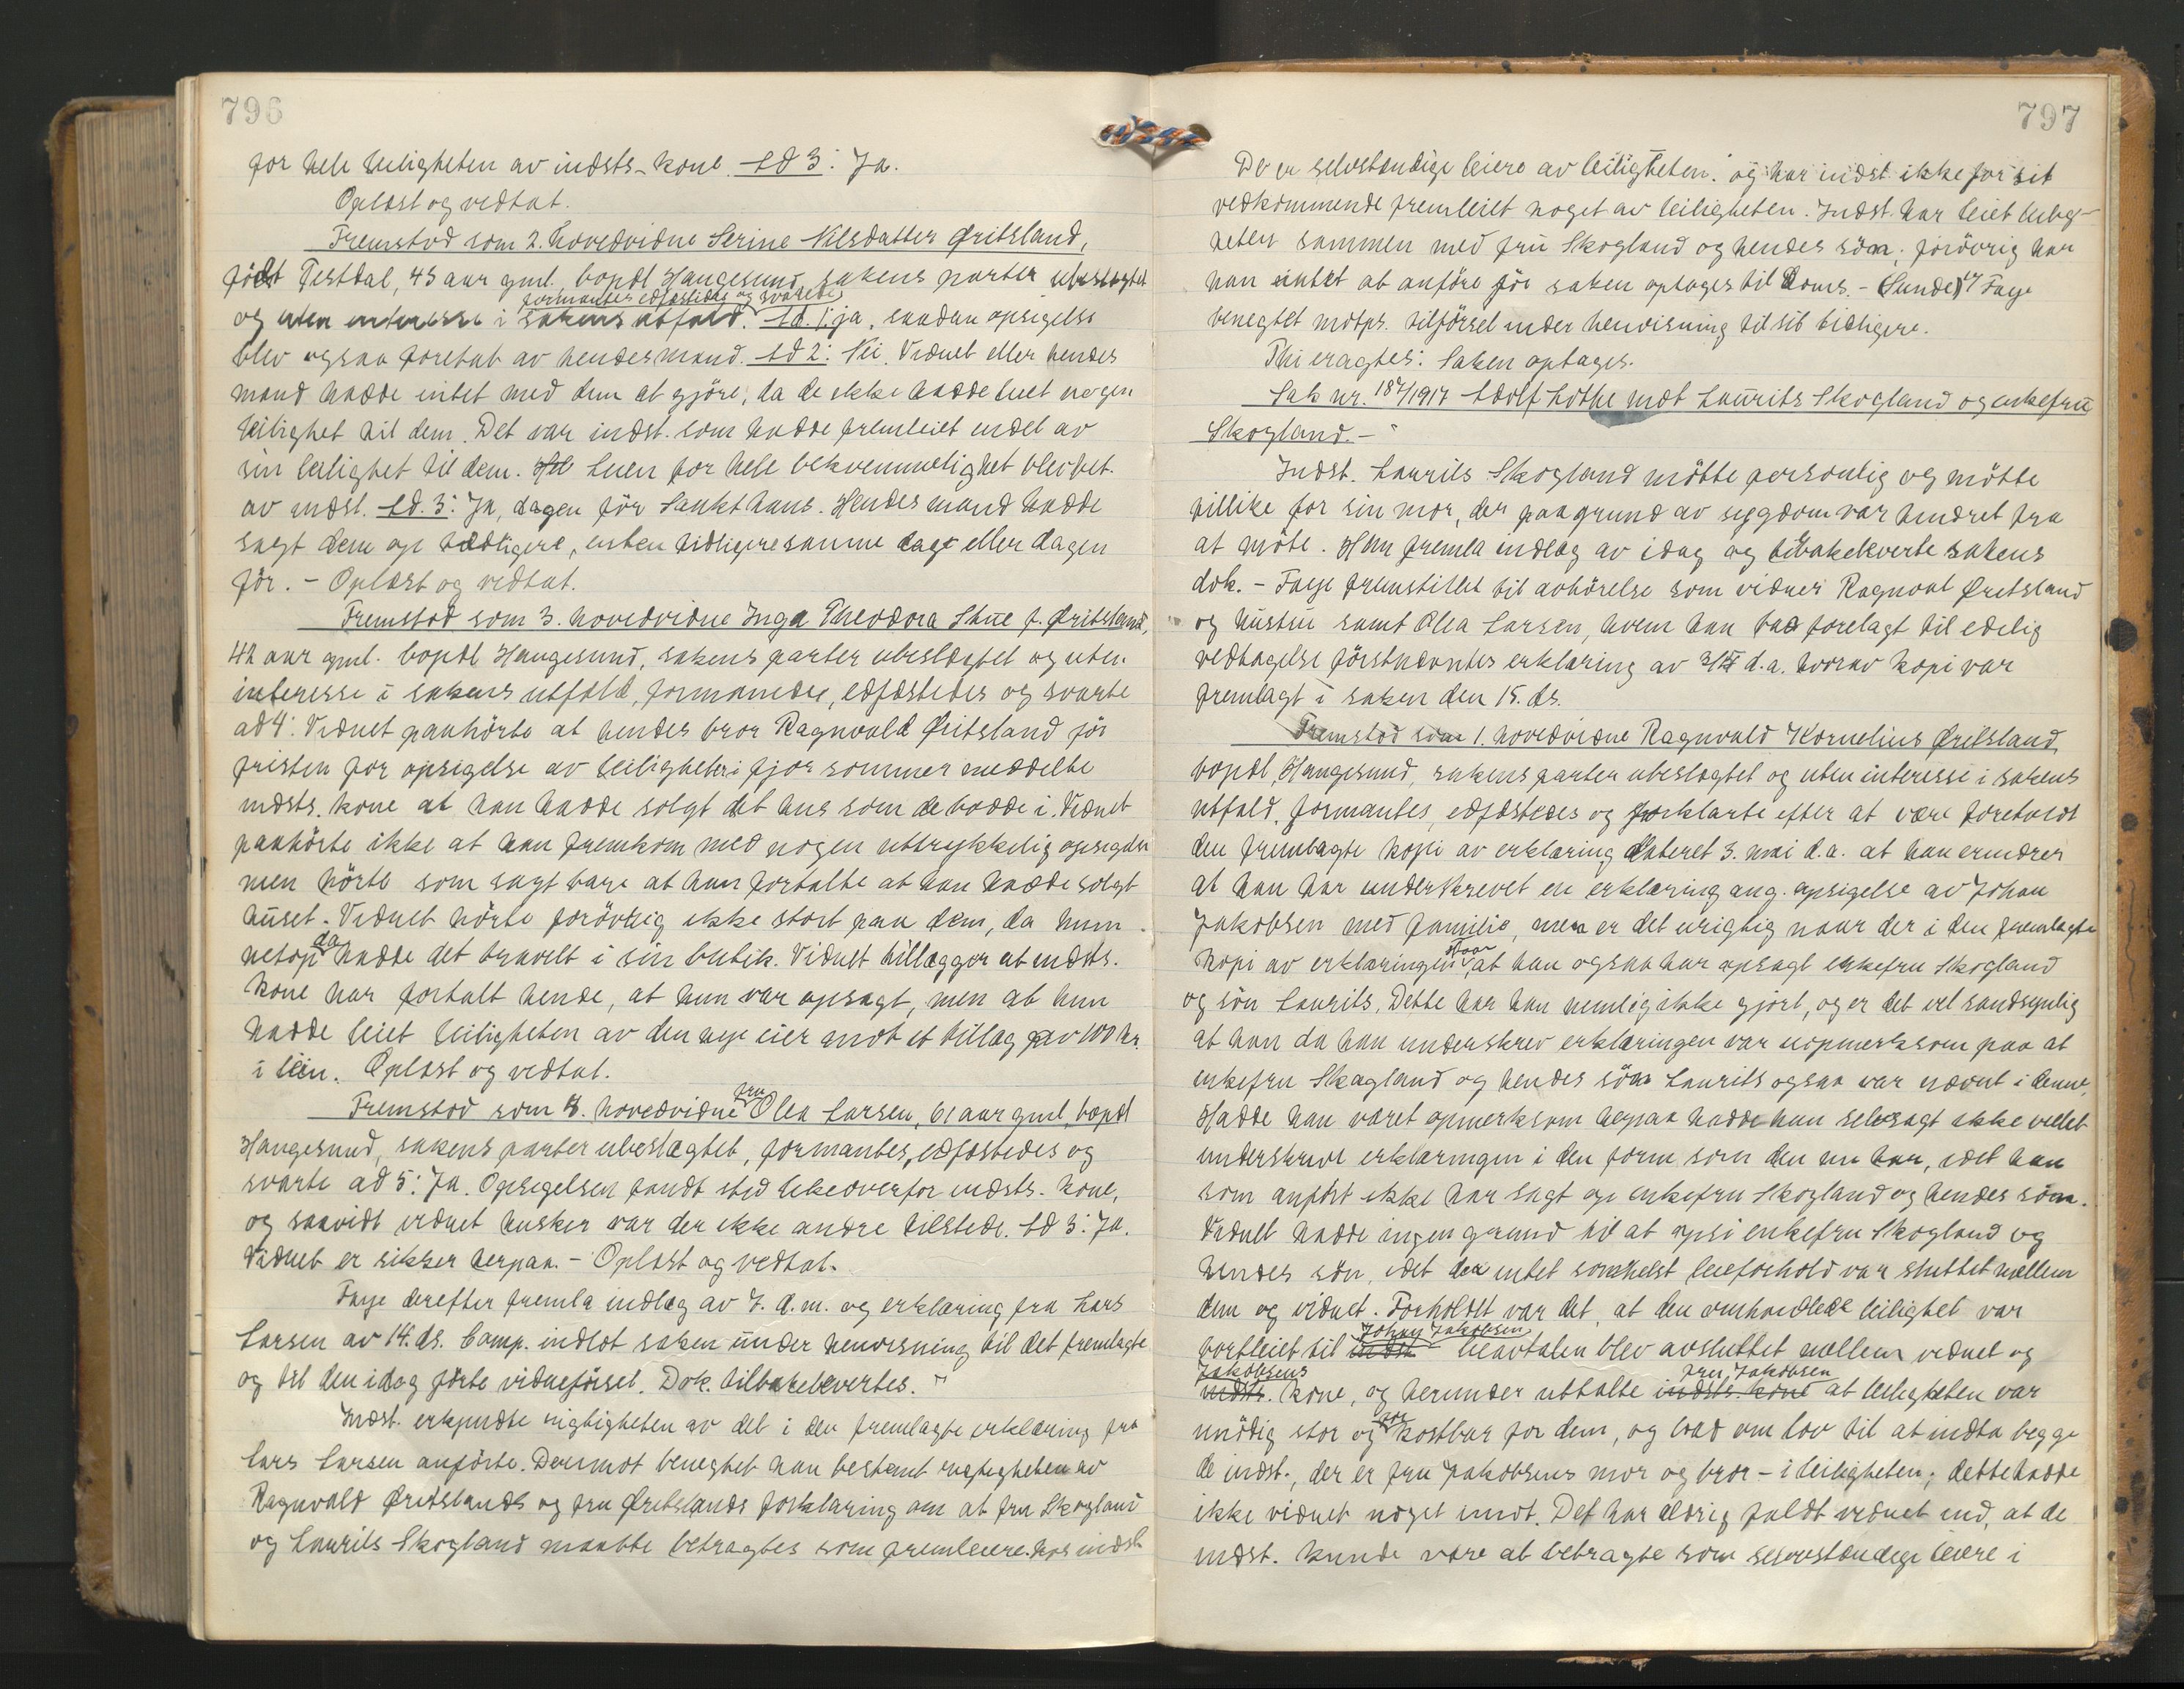 796
for hele leiligheten av indsts. kone. Ad 3: Ja.
Oplæst og vedtat.
Fremstod som 2. hovedvidne Serine Nilsdatter Øritsland,
født Testdal, 45 aar gml. bopdl Haugesund, sakens parter ubeslægtet
formantes edfæstedes og svarede
og uten interesse i sakens utfald. Ad. 1: ja, saadan opsigelse
blev ogsaa foretat av hendes mand. Ad 2: Nei. Vidnet eller hendes
mand hadde intet med dem at gjöre, da de ikke hadde leiet nogen
leilighet til dem. Det var indst. som hadde fremleiet endel av
sin leilighet til dem. Leien for hele bekvemmelighet blev bet.
av indst. Ad. 3: Ja, dagen för Sankthans. Hendes mand hadde
sagt dem op tidligere, enten tidligere samme dag eller dagen
för. - Oplæst og vedtat.
Fremstod som 3. hovedvidne Inga Theodora Skue f. Øritsland,
42 aar gml. bopdl Haugesund, sakens parter ubeslægtet og uten
interesse i sakens utfald, formanedes, edfæstedes og svarte
ad 4: Vidnet paahörte at hendes bror Ragnvald Øritsland för
fristen for opsigelse av leiligheten i fjor sommer meddelte
indsts. kone at han hadde solgt det hus som de bodde i. Vidnet
paahörte ikke at han fremkom med nogen uttrykkelig opsigelse
men hörte som sagt bare at han fortalte at han hadde solgt
huset. Vidnet hörte forövrig ikke stort paa dem, da hun
netop da hadde det travelt i sin butik. Vidnet tillægger at indsts.
kone har fortalt hende, at hun var opsagt, men at hun
hadde leiet leiligheten av den nye eier mot et tillæg av 100 kr.
i leien. Oplæst og vedtat.
Fremstod som 4. hovedvidne fru Olea Larsen, 61 aar gml, bopdl
Haugesund, sakens parter ubeslægtet, formantes, edfæstedes og
svarte ad 5: Ja. Opsigelsen fandt sted likeoverfor indsts. kone,
og saavidt vidnet husker var der ikke andre tilstede. Ad 3: Ja.
Vidnet er sikker herpaa. - Oplæst og vedtat.
Faye derefter fremla indlæg av I. d.m. og erklæring fra Lars
Larsen av 14. ds. Comp. indlot saken under henvisning til det fremlagte
og til den idag förte vidneförsel. Dok. tilbakelevertes.
Indst. erkjendte rigtigheten av det i den fremlagte erklæring fra
Lars Larsen anförte. Derimot benegtet han bestemt rigtigheten av
Ragnvald Øritslands og fru Øritslands forklaring om at fru Skogland
og Laurits Skogland maatte betragtes som fremleiere hos indst.
797
De er selvstændige leiere av leiligheten. og har indst ikke for sit
vedkommende fremleiet noget av leiligheten. Indst. har leiet leilig-
heten sammen med fru Skogland og hendes sön; forövrig har
han intet at anföre för saken optages til doms. - Sunde f Faye
benegtet motps. tilförsel under henvisning til sit tidligere.
Thi eragtes: Saken optages.
Sak nr. 187/1917 Adolf Lothe mot Laurits Skogland og enkefru
Skogland. -
Indst. Laurits Skogland mötte personlig og mötte
tillike for sin mor, der paa grund av sygdom var hindret fra
at möte. Han fremla indlæg av idag og tilbakeleverte sakens
dok. - Faye fremstillet til avhörelse som vidner Ragnval Øritsland
og hustru samt Olea Larsen, hvem han bad forelagt til edelig
vedtagelse förstnævntes erklæring av 3/5 d.a. hvorav kopi var
fremlagt i saken den 15. ds.
Fremstod som 1. hovedvidne Ragnvald Kornelius Øritsland,
bopdl Haugesund, sakens parter ubeslægtet og uten interesse i sakens
utfald, formantes, edfæstedes og forklarte efter at være foreholdt
den fremlagte kopi av erklæring dateret 3. mai d.a. at han erindrer
at han har underskrevet en erklæring ang. opsigelse av Johan
Jakobsen med familie, men er det urigtig naar der i den fremlagte
kopi av erklæringen staar at han ogsaa har opsagt enkefru Skogland
og sön Laurits. Dette har han nemlig ikke gjort, og er det vel sandsynlig
at han da han underskrev erklæringen var uopmerksom paa at
enkefru Skogland og hendes sön Laurits ogsaa var nævnt i denne.
Hadde han været opmerksom herpaa hadde han selvsagt ikke villet
underskrive erklæringen i den form som den nu har, idet han
som anfört ikke har sagt op enkefru Skogland og hendes sön.
Vidnet hadde ingen grund til at opsi enkefru Skogland og
hendes sön, idet der intet somhelst leieforhold var sluttet mellem
dem og vidnet. Forholdet var det, at den omhandlede leilighet var
bortleiet til indst. Johan Jakobsen leieavtalen blev avsluttet mellem vidnet og
indsts. Jakobsens kone, og herunder uttalte indsts. kone fru Jakobsen at leiligheten var
unödig stor og for kostbar for dem, og bad om lov til at indta begge
de indst., der er fru Jakobsens mor og bror - i leiligheten; dette hadde
ikke vidnet noget imot. Det har aldrig faldt vidnet ind, at de
indst. kunde være at betragte som selvstændige leiere i